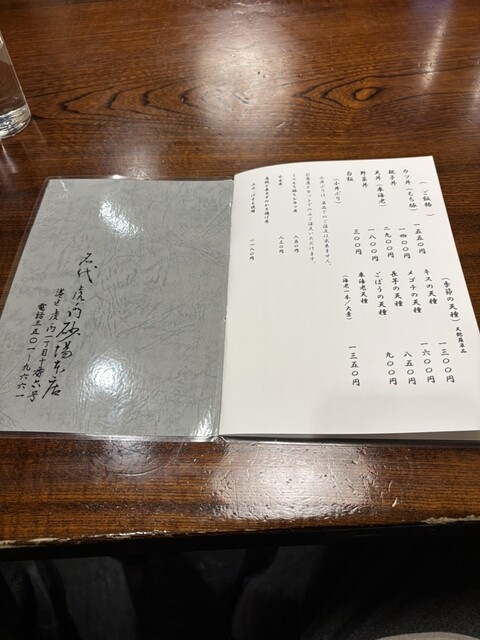 (ご飯物)
カツ丼(もち豚) 一五五〇円
親子丼 一四〇〇円
天丼(車海老) 二九〇〇円
野菜丼 一八〇〇円
白飯 三〇〇円
(小丼ぶり)
小丼ぶりは、単品でのご注文は出来ません。
(季節の天種) 天麩羅単品
キスの天種 一三〇〇円
メゴチの天種 一六〇〇円
長芋の天種 八五〇円
ごぼうの天種 九〇〇円
車海老天種 一三五〇円
(海老一本/大葉)
名代 虎ノ門砂場本店
港区虎ノ門一丁目十番六号
電話三五〇一-九六六一